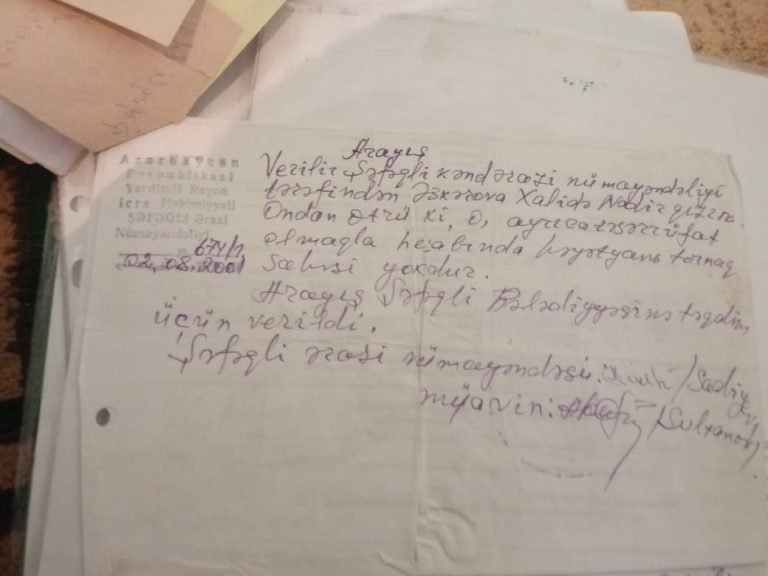 Azərbaycan
Respublikası
Yardımlı Rayon
İcra Hakimiyyəti
ŞƏFƏQLİ Ərazi
Nümayəndəliyi
674/1
02.08.2001
Arayış
Verilir Şəfəqli kənd ərazi nümayəndəliyi
tərəfindən Əskərova Xalidə Nadir qızına
Ondan ötrü ki, o, ayrıca təsərrüfat
olmaqla hesabında həyətyanı torpaq
sahəsi yoxdur.
Arayış Şəfəqli Bələdiyyəsinə təqdim
üçün verildi.
Şəfəqli ərazi nümayəndəsi: /Sadiyev/
müavini: /Sultanov/